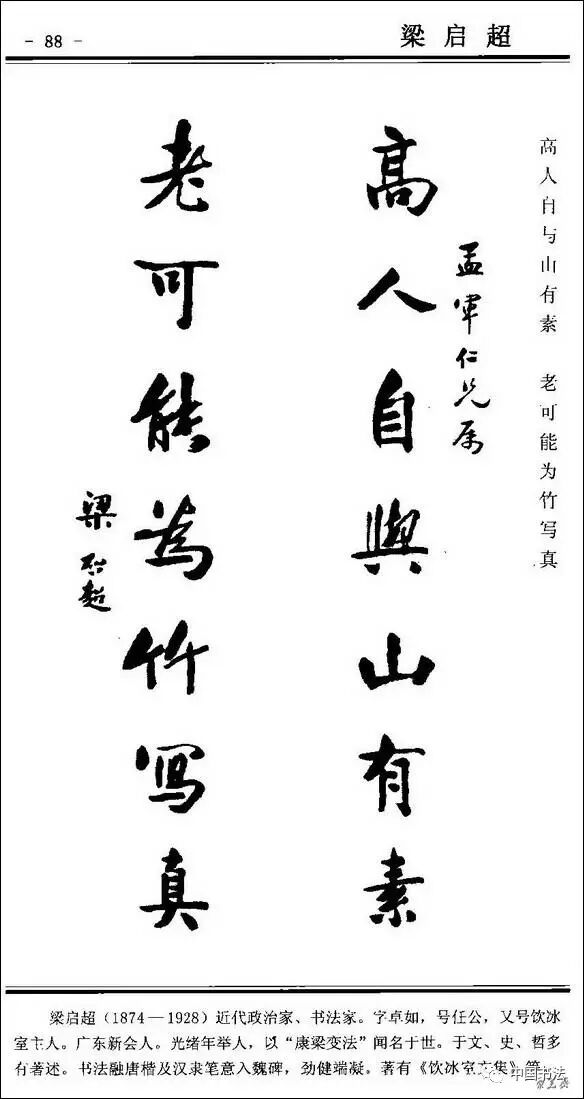 - 88 -
梁启超
高人自与山有素 老可能为竹写真
孟軍仁兄属
高人自與山有素
老可能為竹寫真
梁啟超
梁启超(1874—1928)近代政治家、书法家。字卓如,号任公,又号饮冰
室主人。广东新会人。光绪年举人,以“康梁变法”闻名于世。于文、史、哲多
有著述。书法融唐楷及汉隶笔意入魏碑,劲健端凝。著有《饮冰室文集》等
中国书法